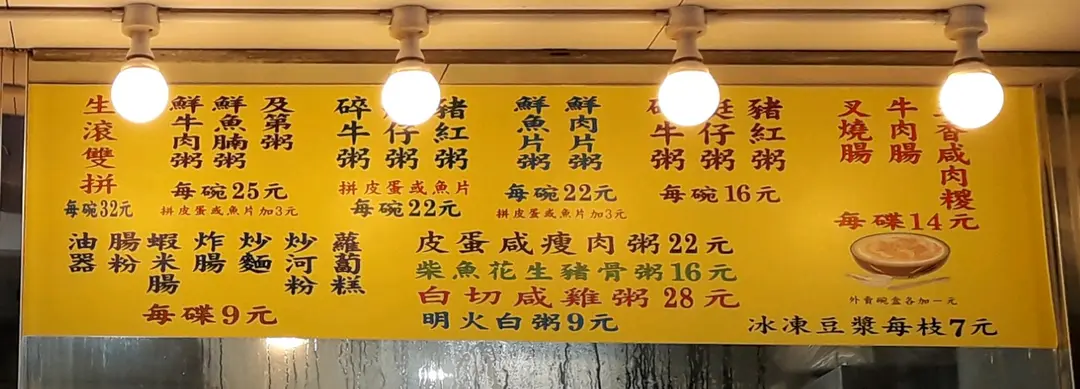 生滾雙拼
每碗32元
鮮牛肉粥
鮮魚腩粥
及第粥
每碗25元
拼皮蛋或魚片加3元
碎牛粥
仔粥
豬紅粥
拼皮蛋或魚片
每碗22元
鮮魚片粥
鮮肉片粥
每碗22元
拼皮蛋或魚片加3元
牛粥
艇仔粥
豬紅粥
每碗16元
叉燒腸
牛肉腸
香咸肉糉
每碟14元
油器
腸粉
蝦米腸
炸腸
炒麵
炒河粉
蘿蔔糕
每碟9元
皮蛋咸瘦肉粥22元
柴魚花生豬骨粥16元
白切咸雞粥28元
明火白粥9元
外賣碗盒各加一元
冰凍豆漿每枝7元